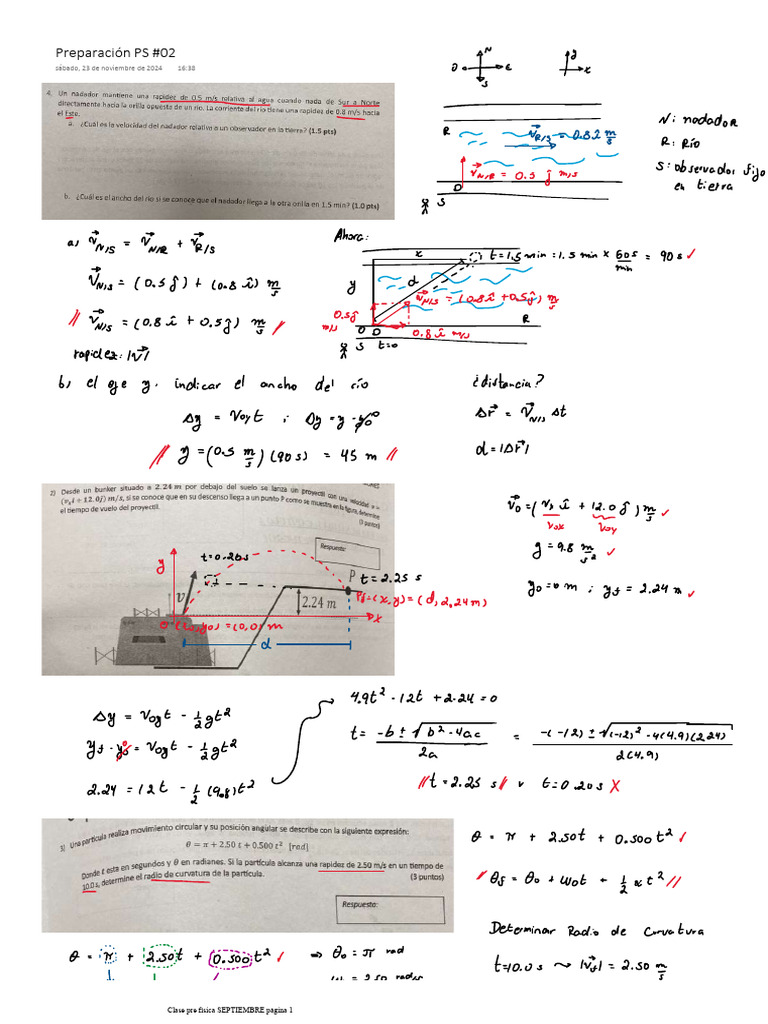 Preparación PS #02
sábado, 23 de noviembre de 2024 16:38
4. Un nadador mantiene una rapidez de 0.5 m/s relativo al agua cuando nada de Sur a Norte
directamente hacia la orilla opuesta de un río. La corriente del río tiene una rapidez de 0.8 m/s hacia
el Este.
a. ¿Cuál es la velocidad del nadador relativo a un observador en la tierra? (1.5 pts)
b. ¿Cuál es el ancho del río si se conoce que el nadador llego a la otra orilla en 1.5 min? (1.0 pts)
N
O E
S
y
x
R
V⃗R/S = 0.8 î m/s
V⃗N/R = 0.5 ĵ m/s
S
N: nadador
R: Río
S: observador fijo
en tierra
a) V⃗N/S = V⃗N/R + V⃗R/S
V⃗N/S = (0.5 ĵ) + (0.8 î) m/s
// V⃗N/S = (0.8 î + 0.5 ĵ) m/s //
rapidez: |V⃗|
Ahora:
x
t = 1.5 min = 1.5 min × 60 s/min = 90 s ✓
y
d
V⃗N/S = (0.8 î + 0.5 ĵ) m/s
0.5 ĵ
m/s
0.8 î m/s
R
S t=0
b) el eje y, indicar el ancho del río
Δy = Voy t ; Δy = y - y₀
// y = (0.5 m/s) (90 s) = 45 m //
¿distancia?
Δr⃗ = V⃗N/S Δt
d = |Δr⃗|
2) Desde un bunker situado a 2.24 m por debajo del suelo se lanza un proyectil con una velocidad v =
(vₓi + 12.0j) m/s, si se conoce que en su descenso llega a un punto P como se muestra en la figura, determine
el tiempo de vuelo del proyectil.
(3 puntos)
Respuesta:
y
t = 0.20 s
P t = 2.25 s
v
2.24 m
Pf = (x, y) = (d, 2.24 m)
(x₀, y₀) = (0, 0) m
x
d
V⃗₀ = (Vₓ î + 12.0 ĵ) m/s ✓
Vox Voy
g = 9.8 m/s² ✓
y₀ = 0 m ; yf = 2.24 m ✓
Δy = Voy t - ½ g t²
yf - y₀ = Voy t - ½ g t²
2.24 = 12 t - ½ (9.8) t²
4.9t² - 12t + 2.24 = 0
t = -b ± √(b² - 4ac) / 2a = -(-12) ± √((-12)² - 4(4.9)(2.24)) / 2(4.9)
// t = 2.25 s // v t = 0.20 s X
5) Una partícula realiza movimiento circular y su posición angular se describe con la siguiente expresión:
θ = π + 2.50 t + 0.500 t² [rad]
Donde t esta en segundos y θ en radianes. Si la partícula alcanza una rapidez de 2.50 m/s en un tiempo de
10.0 s, determine el radio de curvatura de la partícula.
(3 puntos)
Respuesta:
θ = π + 2.50t + 0.500 t² ✓
// θf = θ₀ + ω₀t + ½ α t² //
Determinar Radio de Curvatura
t = 10.0 s ⇝ |V⃗f| = 2.50 m/s
θ = π + 2.50t + 0.500 t² ✓ ⇒ θ₀ = π rad
Clase pre fisica SEPTIEMBRE pagina 1